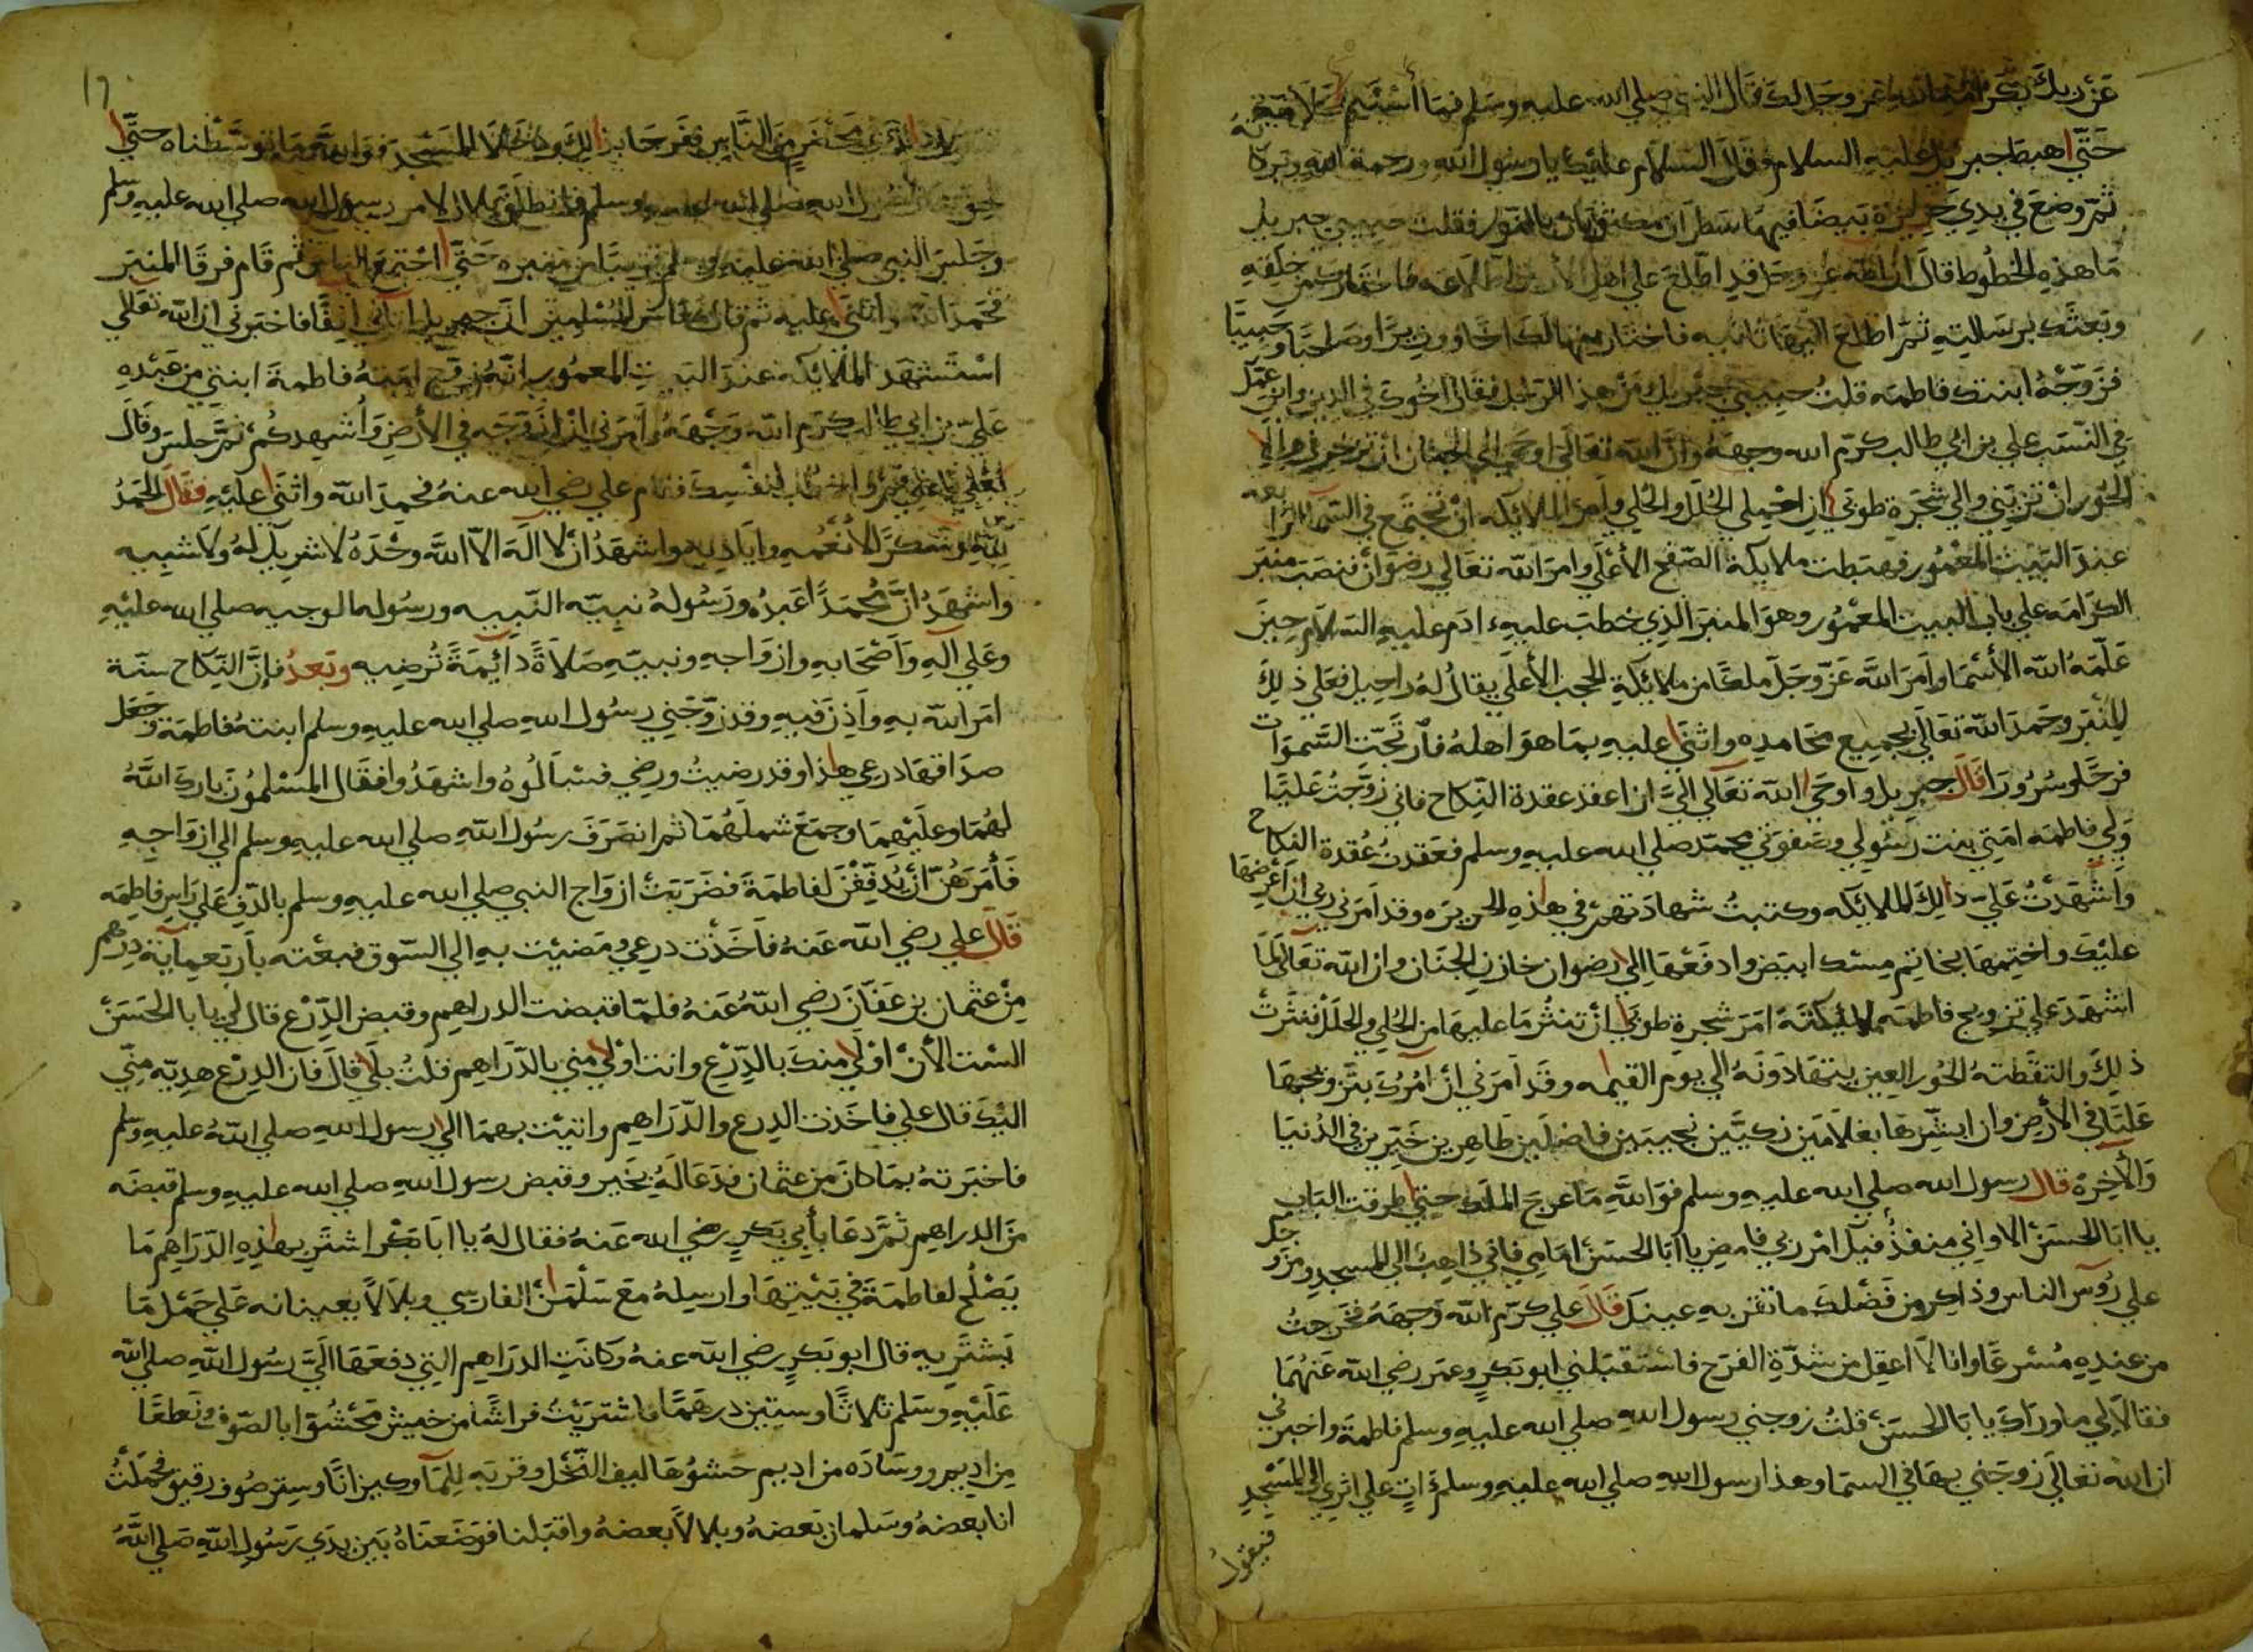 عن ربك بكرامة الله عز وجل لك فقال النبي صلي الله عليه وسلم فما استتم كلامه
حتي اهبط جبريل عليه السلام وقال السلام عليك يا رسول الله ورحمة الله وبركا
ثم وضع في يدي حريرة بيضا فيها سطران مكتوبان بالنور فقلت حبيبي جبريل
ما هذه الخطوط قال ان الله عز وجل قد اطلع علي اهل الارض اطلاعه فاختارك من خلقه
وبعثك برسالته ثم اطلع اليها ثانيه فاختار منها لك اخا ووزيرا وصاحبا وحبيبا
فزوجه ابنتك فاطمه قلت حبيبي جبريل من هذا الرجل فقال اخوك في الدين وابن عمك
في النسب علي بن ابي طالب كرم الله وجهه وان الله تعالي اوحي الي الجنان ان تزخرفي والي
الحور ان تزيني والي شجرة طوبي ان احملي الحلل والحلي وامر الملائكه ان تجتمع في السما الرابعه
عند البيت المعمور فهبطت ملايكة الصفح الأعلي وامر الله تعالي رضوان فنصب منبر
الكرامه علي باب البيت المعمور وهو المنبر الذي خطب عليه ءادم عليه السلام حين
علمه الله الأسما وامر الله عز وجل ملكا من ملائكة الحجب الأعلي يقال له راحيل فعلي ذلك
المنبر وحمد الله تعالي بجميع محامده واثني عليه بما هو اهله فارتجت السموات
فرحا وسرورا قال جبريل واوحي الله تعالي الي ان اعقد عقدة النكاح فاني زوجت عليا
ولي فاطمه امتي بنت رسولي وصفوتي محمد صلي الله عليه وسلم فعقدت عقدة النكاح
واشهدت علي ذالك الملائكه وكتبت شهادتهم في هذه الحريره وقد امرني ربي ان اعرضها
عليك واختمها بخاتم مسك ابيض وادفعها الي رضوان خازن الجنان وان الله تعالي لما
اشهد علي تزويج فاطمه ملائكته امر شجرة طوبي ان تنثر ما عليها من الحلي والحلل فنثرت
ذلك والتقطته الحور العين يتهادونه الي يوم القيمه وقد امرني ان امرك بتزويجها
عليا في الأرض وان ابشرها بغلامين زكيين نجيبين فاضلين طاهرين خيرين في الدنيا
والأخرة قال رسول الله صلي الله عليه وسلم فوالله ما عرج الملك حتي طرقت الباب
يا ابا الحسن الا واني منفذ فيك امر ربي فامض يا ابا الحسن امامي فاني ذاهب الي المسجد ومزوجك
علي رؤس الناس وذاكر من فضلك ما تقر به عينك قال علي كرم الله وجهه فخرجت
من عنده مسرعا وانا لا اعقل من شدة الفرح فاستقبلني ابو بكر وعمر رضي الله عنهما
فقالا لي ما وراك يا با الحسن قلت زوجني رسول الله صلي الله عليه وسلم فاطمة واخبرني
ان الله تعالي زوجني بها في السما وهذا رسول الله صلي الله عليه وسلم ءات علي اثري الي المسجد
فيقول
ذالك بمحضر من الناس ففرحا بذالك ودخلا المسجد فوالله ما توسطناه حتي
لحق بنا رسول الله صلي الله عليه وسلم فانطلق بلال لامر رسول الله صلي الله عليه وسلم
وجلس النبي صلي الله عليه وسلم قريبا من منبره حتي اجتمع الناس ثم قام فرقا المنبر
فحمد الله واثني عليه ثم قال معاشر المسلمين ان جبريل اتاني انفا فاخبرني ان الله تعالي
استشهد الملائكه عند البيت المعمور انه زوج امته فاطمة ابنتي من عبده
علي بن ابي طالب كرم الله وجهه وامرني ان ازوجه في الأرض واشهدكم ثم جلس وقال
لعلي يا علي قم واخطب لنفسك فقام علي رضي الله عنه فحمد الله واثني عليه فقال الحمد
لله وشكرا لأنعمه واياديه واشهد ان لا اله الا الله وحده لا شريك له ولا شبيه
واشهد ان محمدا عبده ورسوله نبيه النبيه ورسوله الوجيه صلي الله عليه
وعلي آله واصحابه وازواجه ونبيه صلاة دائيمة ترضيه وبعد فان النكاح سنة
امر الله به واذن فيه وقد زوجني رسول الله صلي الله عليه وسلم ابنته فاطمة وجعل
صداقها درعي هذا وقد رضيت ورضي فسالوه واشهدوا فقال المسلمون بارك الله
لهما وعليهما وجمع شملهما ثم انصرف رسول الله صلي الله عليه وسلم الي ازواجه
فأمرهن أن يدففن لفاطمة فضربت ازواج النبي صلي الله عليه وسلم بالدف علي راس فاطمه
قال علي رضي الله عنه فاخذت درعي ومضيت به الي السوق فبعته باربعمائة درهم
من عثمان بن عفان رضي الله عنه فلما قبضت الدراهيم وقبض الدرع قال لي يا با الحسن
الست الأن اولي منك بالدرع وانت اولي مني بالدراهيم قلت بلي قال فان الدرع هديه مني
اليك قال علي فاخذت الدرع والدراهيم واتيت بهما الي رسول الله صلي الله عليه وسلم
فاخبرته بما كان من عثمان فدعا له بخير وقبض رسول الله صلي الله عليه وسلم قبضه
من الدراهيم ثم دعا بأبي بكر رضي الله عنه فقال له يا ابا بكر اشتر بهذه الدراهم ما
يصلح لفاطمة في بيتها وارسله مع سلمن الفارسي وبلالا يعينانه علي حمل ما
يشتريه قال ابو بكر رضي الله عنه وكانت الدراهيم التي دفعها الي رسول الله صلي الله
عليه وسلم ثلاثا وستين درهما فاشتريت فراشا من خيش محشوا بالصوف ونطعا
من اديم ووساده من اديم حشوها ليف النخل وقربه للما وكيزانا وستر صوف رقيق فحملت
انا بعضه وسلمان بعضه وبلالا بعضه واقبلنا فوضعناه بين يدي رسول الله صلي الله